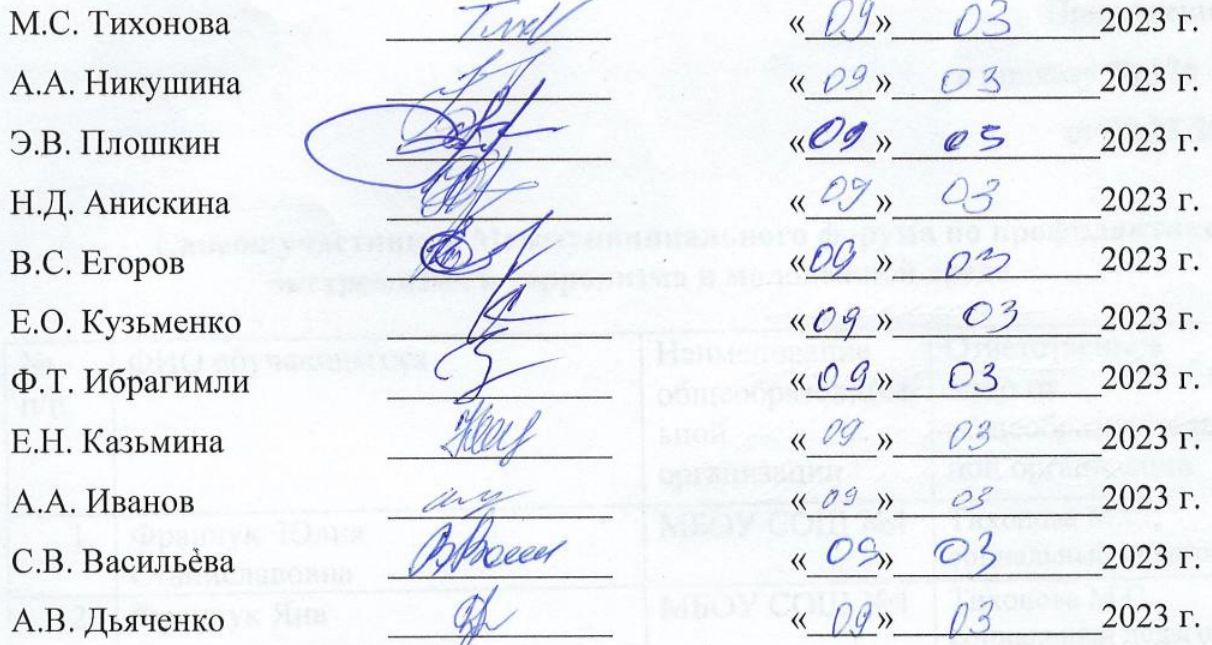 М.С. Тихонова «09» 03 2023 г.
А.А. Никушина «09» 03 2023 г.
Э.В. Плошкин «09» 03 2023 г.
Н.Д. Анискина «09» 03 2023 г.
В.С. Егоров «09» 03 2023 г.
Е.О. Кузьменко «09» 03 2023 г.
Ф.Т. Ибрагимли «09» 03 2023 г.
Е.Н. Казьмина «09» 03 2023 г.
А.А. Иванов «09» 03 2023 г.
С.В. Васильѐва «09» 03 2023 г.
А.В. Дьяченко «09» 03 2023 г.